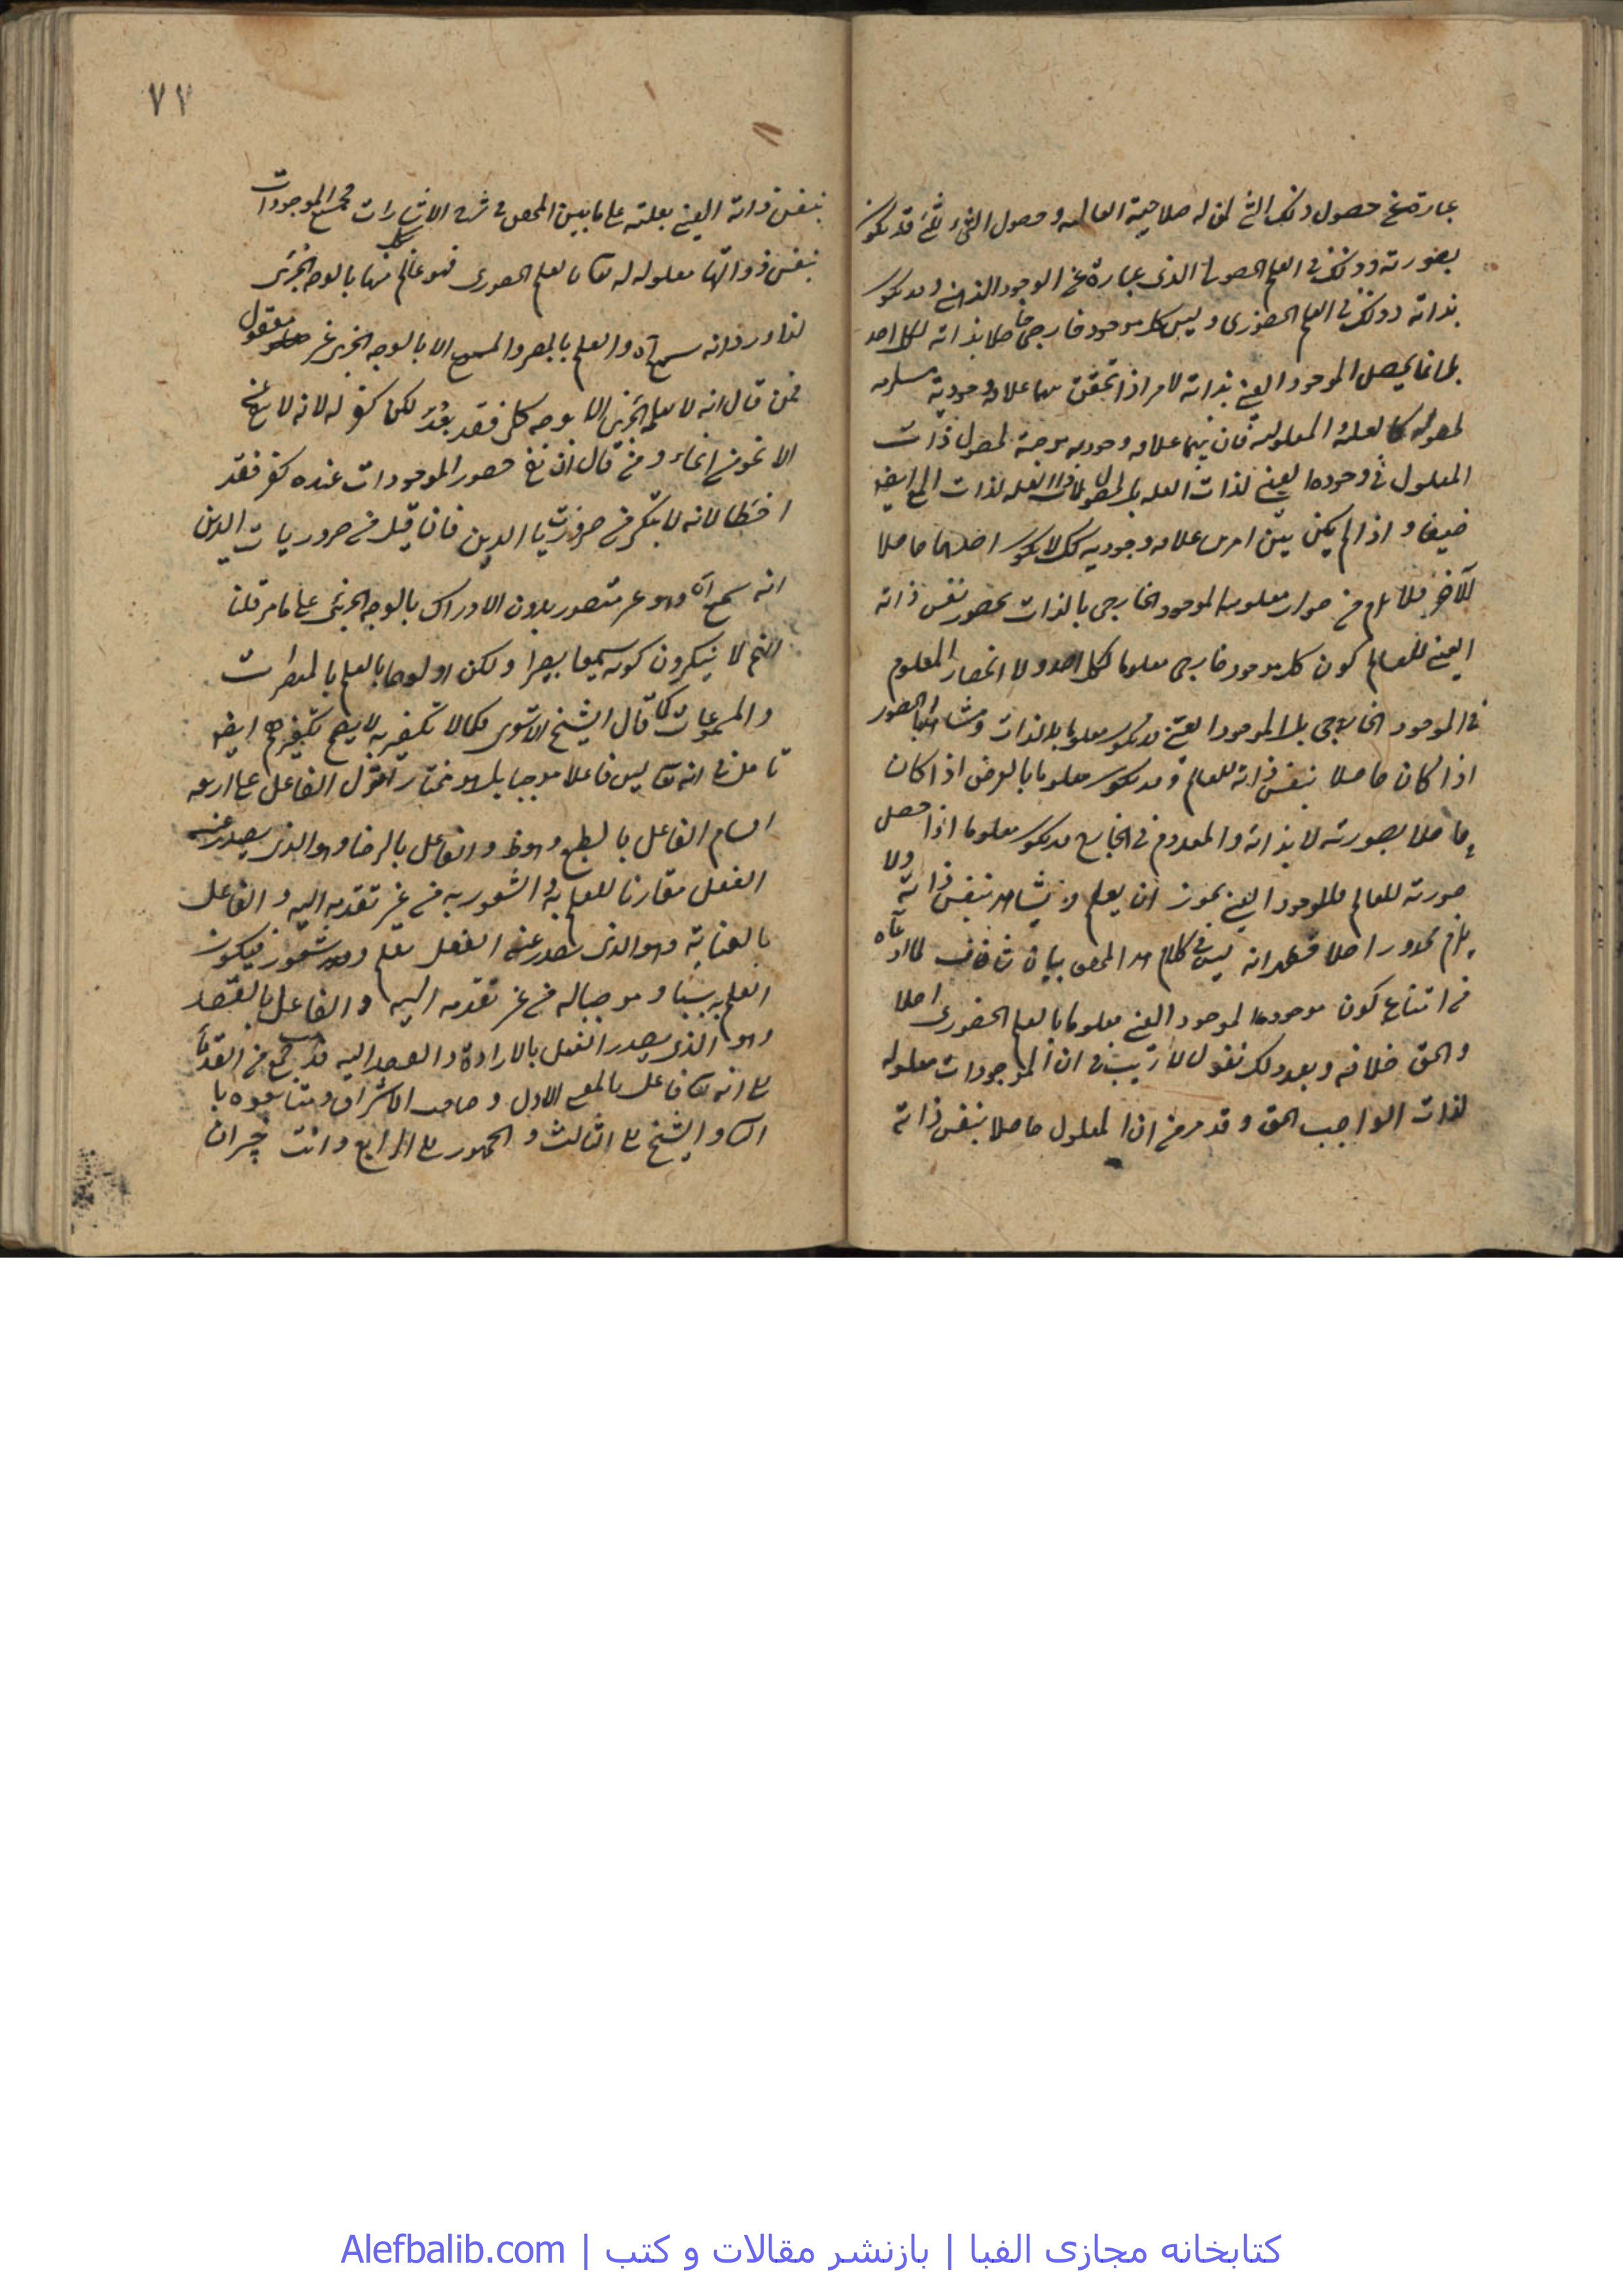 عبارة عن حصول ذلك الشئ لمن له صلاحية العالمية وحصول الشئ لشئ قد يكون
بصورته وذلك في العلم الحصولى الذى عبارة عن الوجود الذهنى وقد يكون
بذاته وذلك في العلم الحضورى وليس كل موجود خارجى حاصلا بذاته لكل احد
بل انما يحصل الموجود العينى بذاته لامر اذا تحقق بينهما علاقة وجودية مستلزمة
لحصوله كالعلية والمعلولية فان بينهما علاقة وجودية موجبة لحصول ذات
المعلول في وجودها العينى لذات العلة بل لحصول ذات العلة لذات المع ايضا
ضعيفا واذا لم يكن بين امرين علاقة وجودية كك لا يكون احدهما حاصلا
للآخر فلا يلزم من جواز معلومية الموجود الخارجى بالذات بحضور نفس ذاته
العينى للعالم كون كل موجود خارجى معلوما لكل احد ولا انحصار المعلوم
في الموجود الخارجى بل الموجود العينى قد يكون معلوما بالذات
اذا كان حاصلا بنفس ذاته للعالم وقد يكون معلوما بالعرض اذا كان
حاصلا بصورته لا بذاته والمعدوم في الخارج قد يكون معلوما اذا حصل
صورته للعالم فالموجود العينى يجوز ان يعلم ويشاهد بنفس ذاته ولا
يلزم محذور اصلا فظهر انه ليس في كلام هذا المحقق بيان شاف لما ادعاه
من امتناع كون الموجود العينى معلوما بالعلم الحضورى اصلا
والحق خلافه وبعد ذلك نقول لا ريب في ان الموجودات معلولة
لذات الواجب الحق وقد مر من ان المعلول حاصل بنفس ذاته
٧٧
بنفس ذاته العينى بعلته على ما بين المحقق في شرح الاشارات فجميع الموجودات
بنفس ذواتها معلولة له تعالى بالعلم الحضورى فهو عالم بها بالوجه الجزئى
لذا ورد انه سميع آه والعلم بالمبصر والمسموع الا بالوجه الجزئى غير معقول
فمن قال انه لا يعلم الجزئى الا بوجه كلى فقد بعد لكن كفر له لانه لا
الا نحو من انحاء ومن قال ان نفى حضور الموجودات عنده كفر فقد
اخطا لانه لا ينكر من ضروريات الدين فان قيل من ضروريات الدين
انه سميع آه وهو غير متصور بدون الادراك بالوجه الجزئى على ما مر قلنا
انهم لا ينكرون كونه سميعا بصيرا ولكن اولوهما بالعلم بالمبصرات
والمسموعات كما قال الشيخ الاشعرى فكما لا تكفير به لا يصح تكفيرهم ايضا
تامل في انه تعالى ليس فاعلا موجبا بل هو مختار نقول الفاعل على اربعة
اقسام الفاعل بالطبع وهو ظ والفاعل بالرضا وهو الذى يصدر عنه
الفعل مقارنا للعلم به والشعور به من غير تقدمه اليه والفاعل
بالعناية وهو الذى يصدر عنه الفعل بعلم وشعور فيكون
العلم به سببا وموجبا له من غير تقدمه اليه والفاعل بالقصد
وهو الذى يصدر الفعل بالارادة والقصد اليه فذهب جمع من القدماء
على انه تعالى فاعل بالمعنى الاول وصاحب الاشراق ومتابعوه با
الثانى والشيخ على الثالث والجمهور على الرابع وانت خبير ان
کتابخانه مجازی الفبا | بازنشر مقالات و کتب | Alefbalib.com